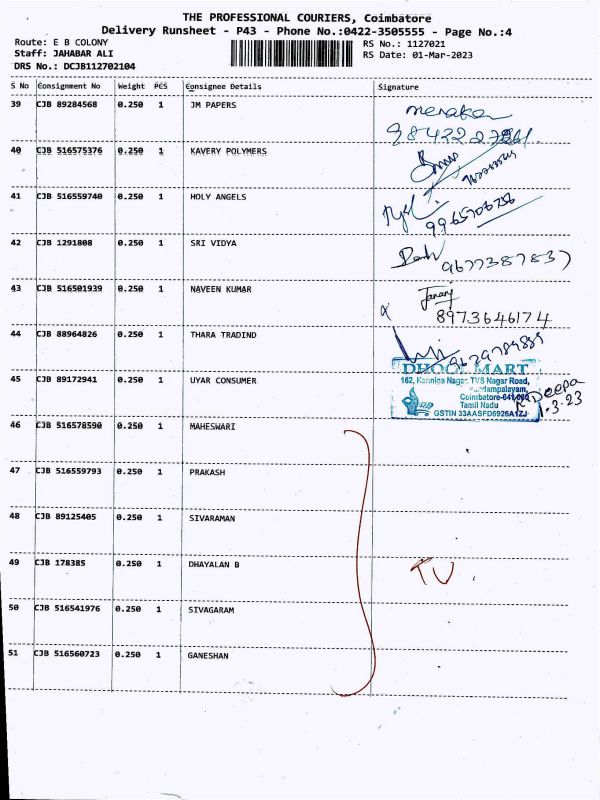 THE PROFESSIONAL COURIERS, Coimbatore
Delivery Runsheet - P43 - Phone No.:0422-3505555 - Page No.:4
Route: E B COLONY RS No.: 1127021
Staff: JAHABAR ALI RS Date: 01-Mar-2023
DRS No.: DCJB112702104
S No Consignment No Weight PCS Consignee Details Signature
39 CJB 89284568 0.250 1 JM PAPERS
40 CJB 516575376 0.250 1 KAVERY POLYMERS
41 CJB 516559740 0.250 1 HOLY ANGELS
9965706756
42 CJB 1291808 0.250 1 SRI VIDYA
9677387837
43 CJB 516501939 0.250 1 NAVEEN KUMAR
8973646174
44 CJB 88964826 0.250 1 THARA TRADIND
DHOOL MART
45 CJB 89172941 0.250 1 UYAR CONSUMER
162, Kanniga Nagar, TVS Nagar Road,
Coimbatore-641
Tamil Nadu
GSTIN 33AASFD6926A1ZJ
Deepa
1.3.23
46 CJB 516578590 0.250 1 MAHESWARI
47 CJB 516559793 0.250 1 PRAKASH
48 CJB 89125405 0.250 1 SIVARAMAN
49 CJB 178385 0.250 1 DHAYALAN B
TV
50 CJB 516541976 0.250 1 SIVAGARAM
51 CJB 516560723 0.250 1 GANESHAN